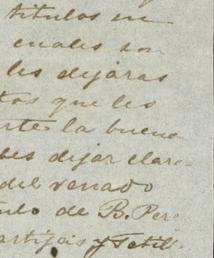 titulos en
cuales son
les dijaras
tos que les
arte la buena
bes dejar clar
del venado
de B. Per
artijas y Tetil